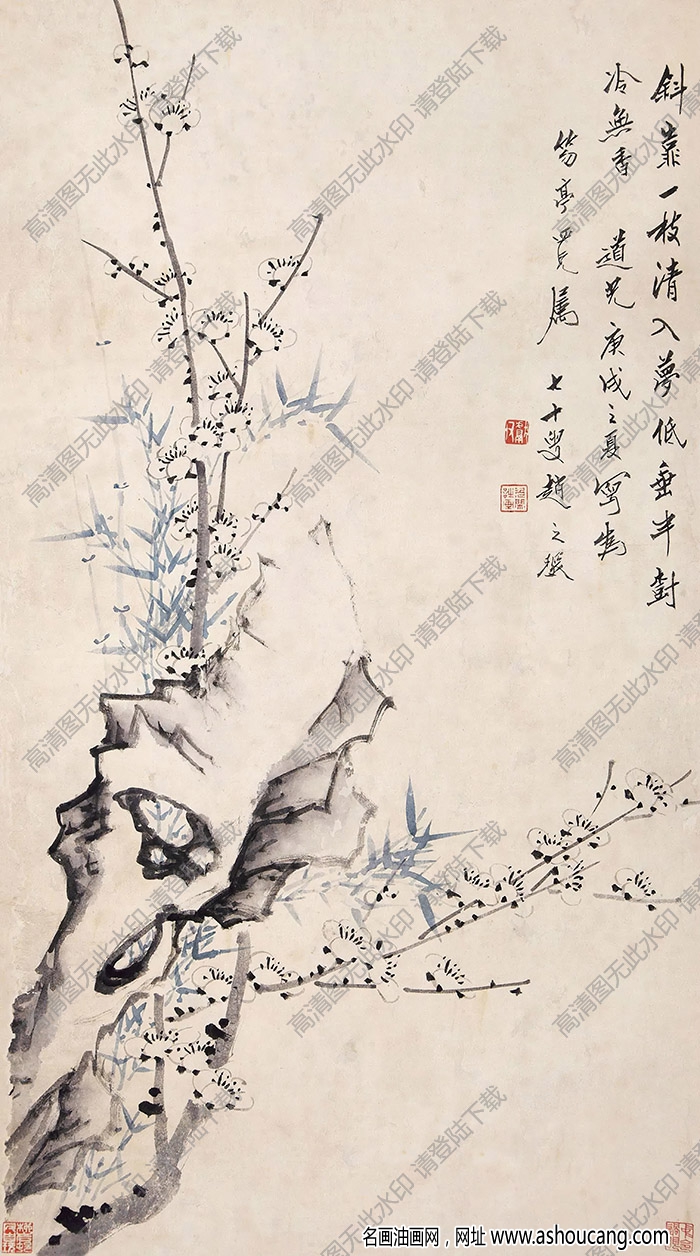 斜靠一枝清入夢低垂半對
冷無香 道光庚戌之夏寫為
笏亭四兄属 七十叟趙之琛
高清图无此水印 请登陆下载
名画油画网，网址 www.ashoucang.com